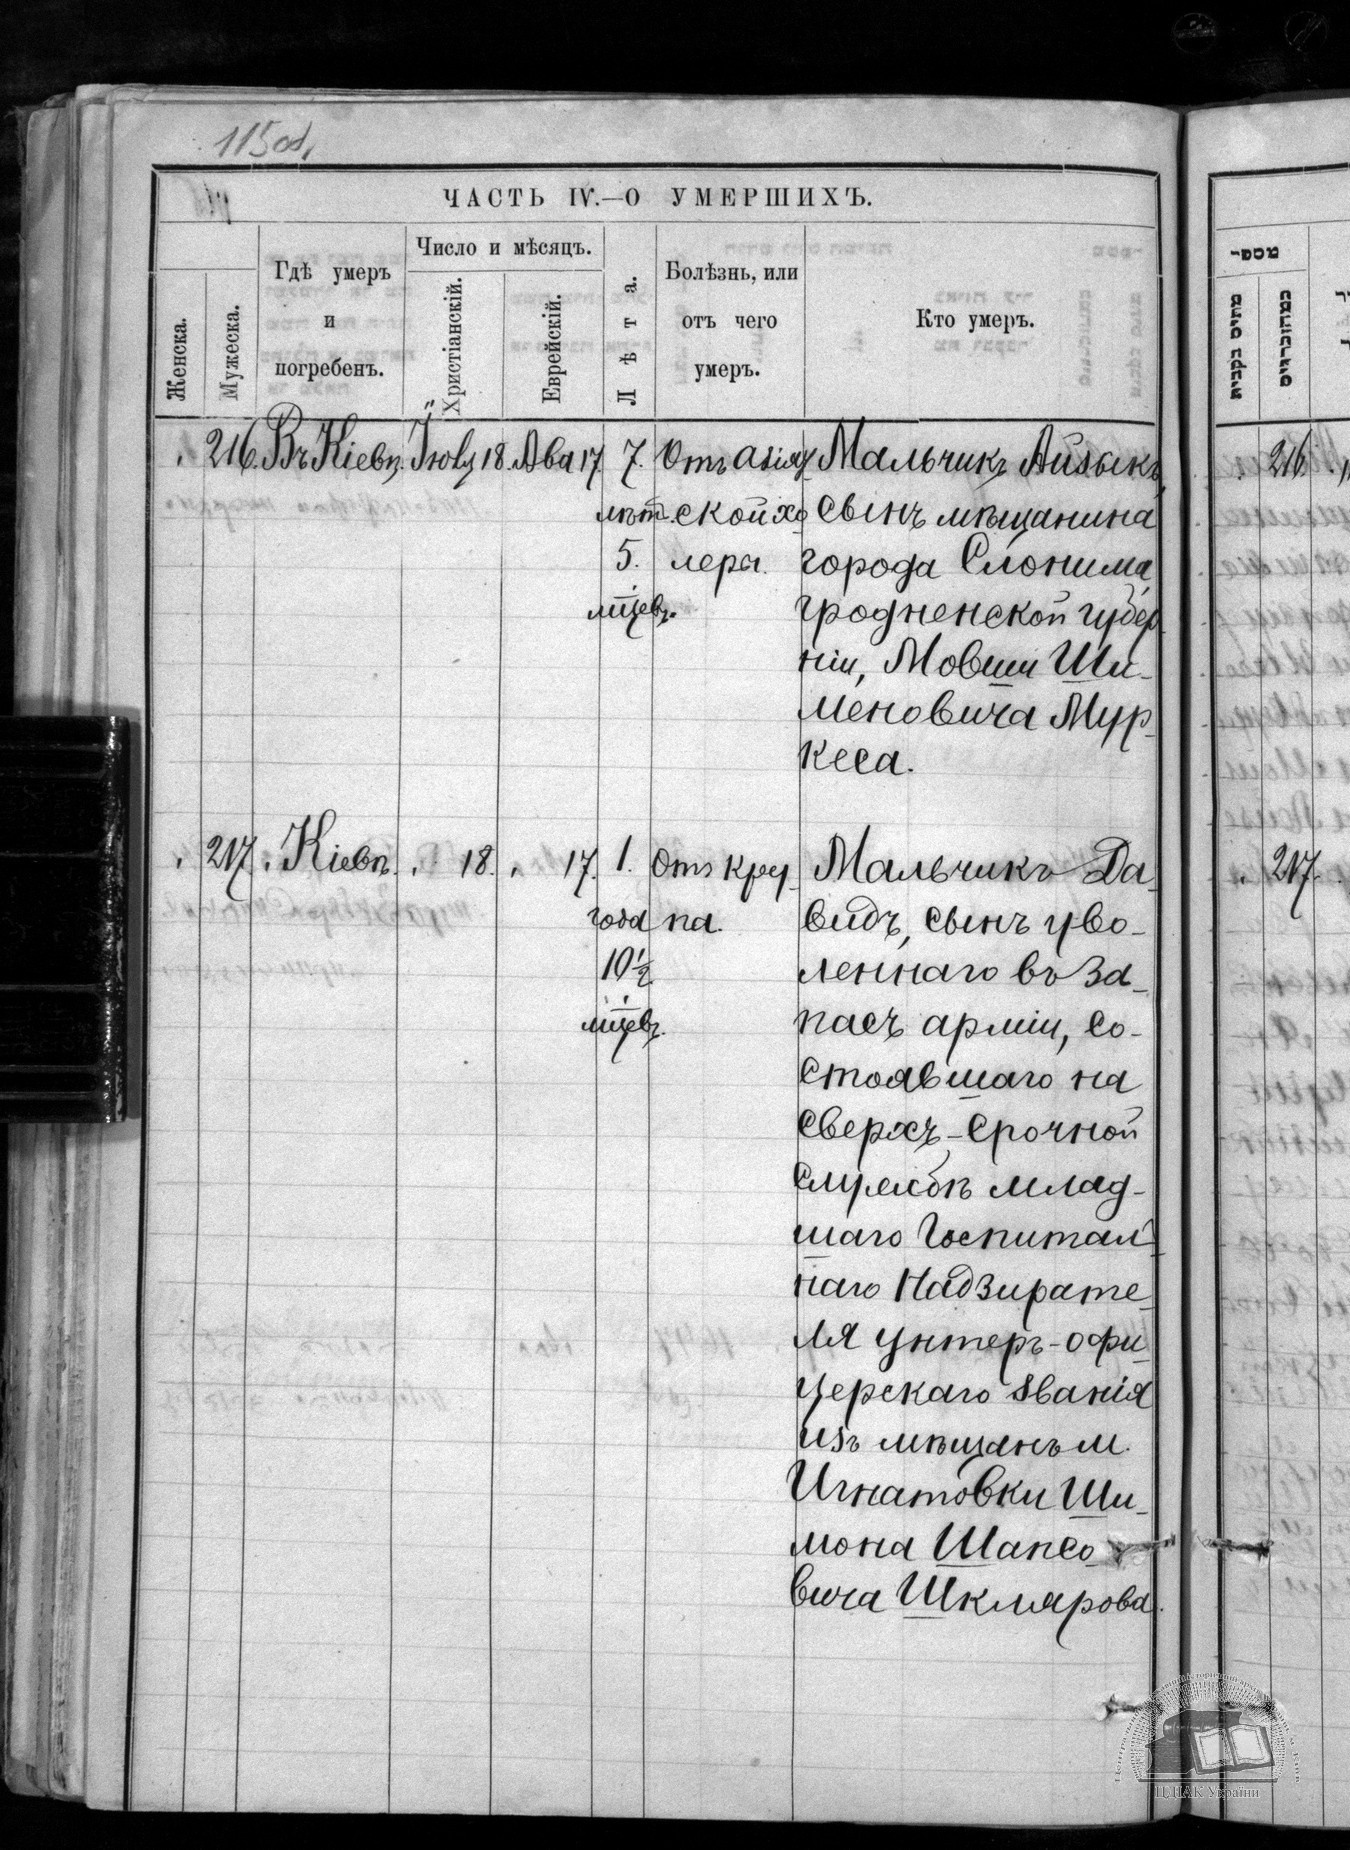 115 об.
ЧАСТЬ IV.—О УМЕРШИХЪ.
Женска.
Мужеска.
Гдѣ умеръ
и
погребенъ.
Число и мѣсяцъ.
Христіанскій.
Еврейскій.
Лѣта.
Болѣзнь, или
отъ чего
умеръ.
Кто умеръ.
216. Въ Кіевѣ. Іюля 18. Ава 17. 7. Отъ азіят- Мальчикъ Айзыкъ,
лѣт. ской хо сынъ мѣщанина
5. леры. города Слонима,
м̅цевъ. Гродненской губер-
ніи, Мовши Ши-
меновича Мур-
кеса.
217. Кіевѣ. 18. 17. 1. Отъ кру- Мальчикъ Да-
года па. видъ, сынъ уво-
10½ леннаго въ за-
м̅цевъ. пасъ арміи, со-
стоявшаго на
сверхъ-срочной
службѣ млад-
шаго Госпитал-
наго Надзирате-
ля унтеръ-офи-
церскаго званія
изъ мѣщанъ м.
Игнатовки Ши-
мона Шапсо-
вича Шклярова.
מספר
מתים נקבות
216
217.
ЦДІАК України